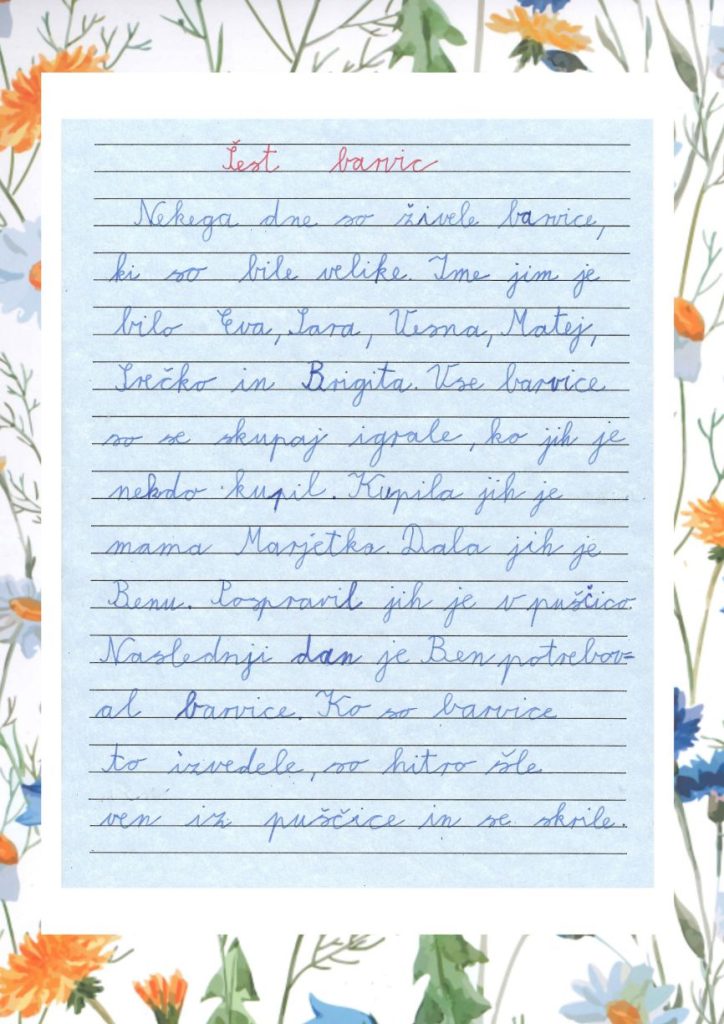 Šest barvic
Nekega dne so živele barvice,
ki so bile velike. Ime jim je
bilo Eva, Sara, Vesna, Matej,
Srečko in Brigita. Vse barvice
so se skupaj igrale, ko jih je
nekdo kupil. Kupila jih je
mama Marjetka. Dala jih je
Benu. Pospravil jih je v puščico.
Naslednji dan je Ben potrebov=
al barvice. Ko so barvice
to izvedele, so hitro šle
ven iz puščice in se skrile.